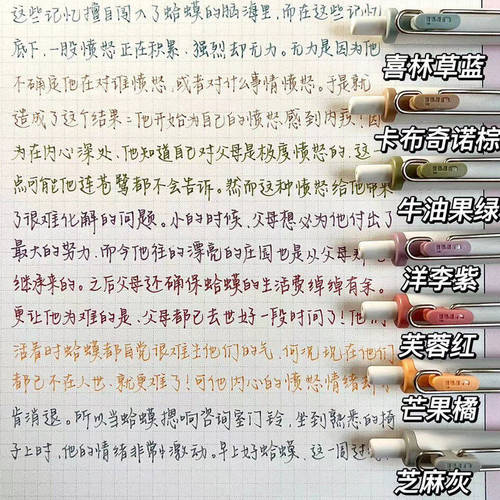 这些记忆擅自闯入了蛤蟆的脑海里，而在这些记忆
底下，一股愤怒正在积累，强烈却无力。无力是因为他
不确定他在对谁愤怒，或者对什么事情愤怒。于是就
造成了这个结果：他开始为自己的愤怒感到内疚！因
为在内心深处，他知道自己对父母是极度愤怒的，这
点可能他连苍鹭都不会告诉。然而这种愤怒给他带来
了很难化解的问题。小的时候，父母想必为他付出了
最大的努力，而今他住的漂亮的庄园也是从父母
继承来的。之后父母还确保蛤蟆的生活费绰绰有余。
更让他为难的是，父母都已去世好一段时间了！他们
活着时蛤蟆都自觉很难生他们的气，何况现在他们
都已不在人世，就更难了！可他内心的愤怒情绪却不
肯消退。所以当蛤蟆摁响咨询室门铃，坐到熟悉的椅
子上时，他的情绪非常激动。早上好蛤蟆，这一周过
喜林草蓝
卡布奇诺棕
牛油果绿
洋李紫
芙蓉红
芒果橘
芝麻灰